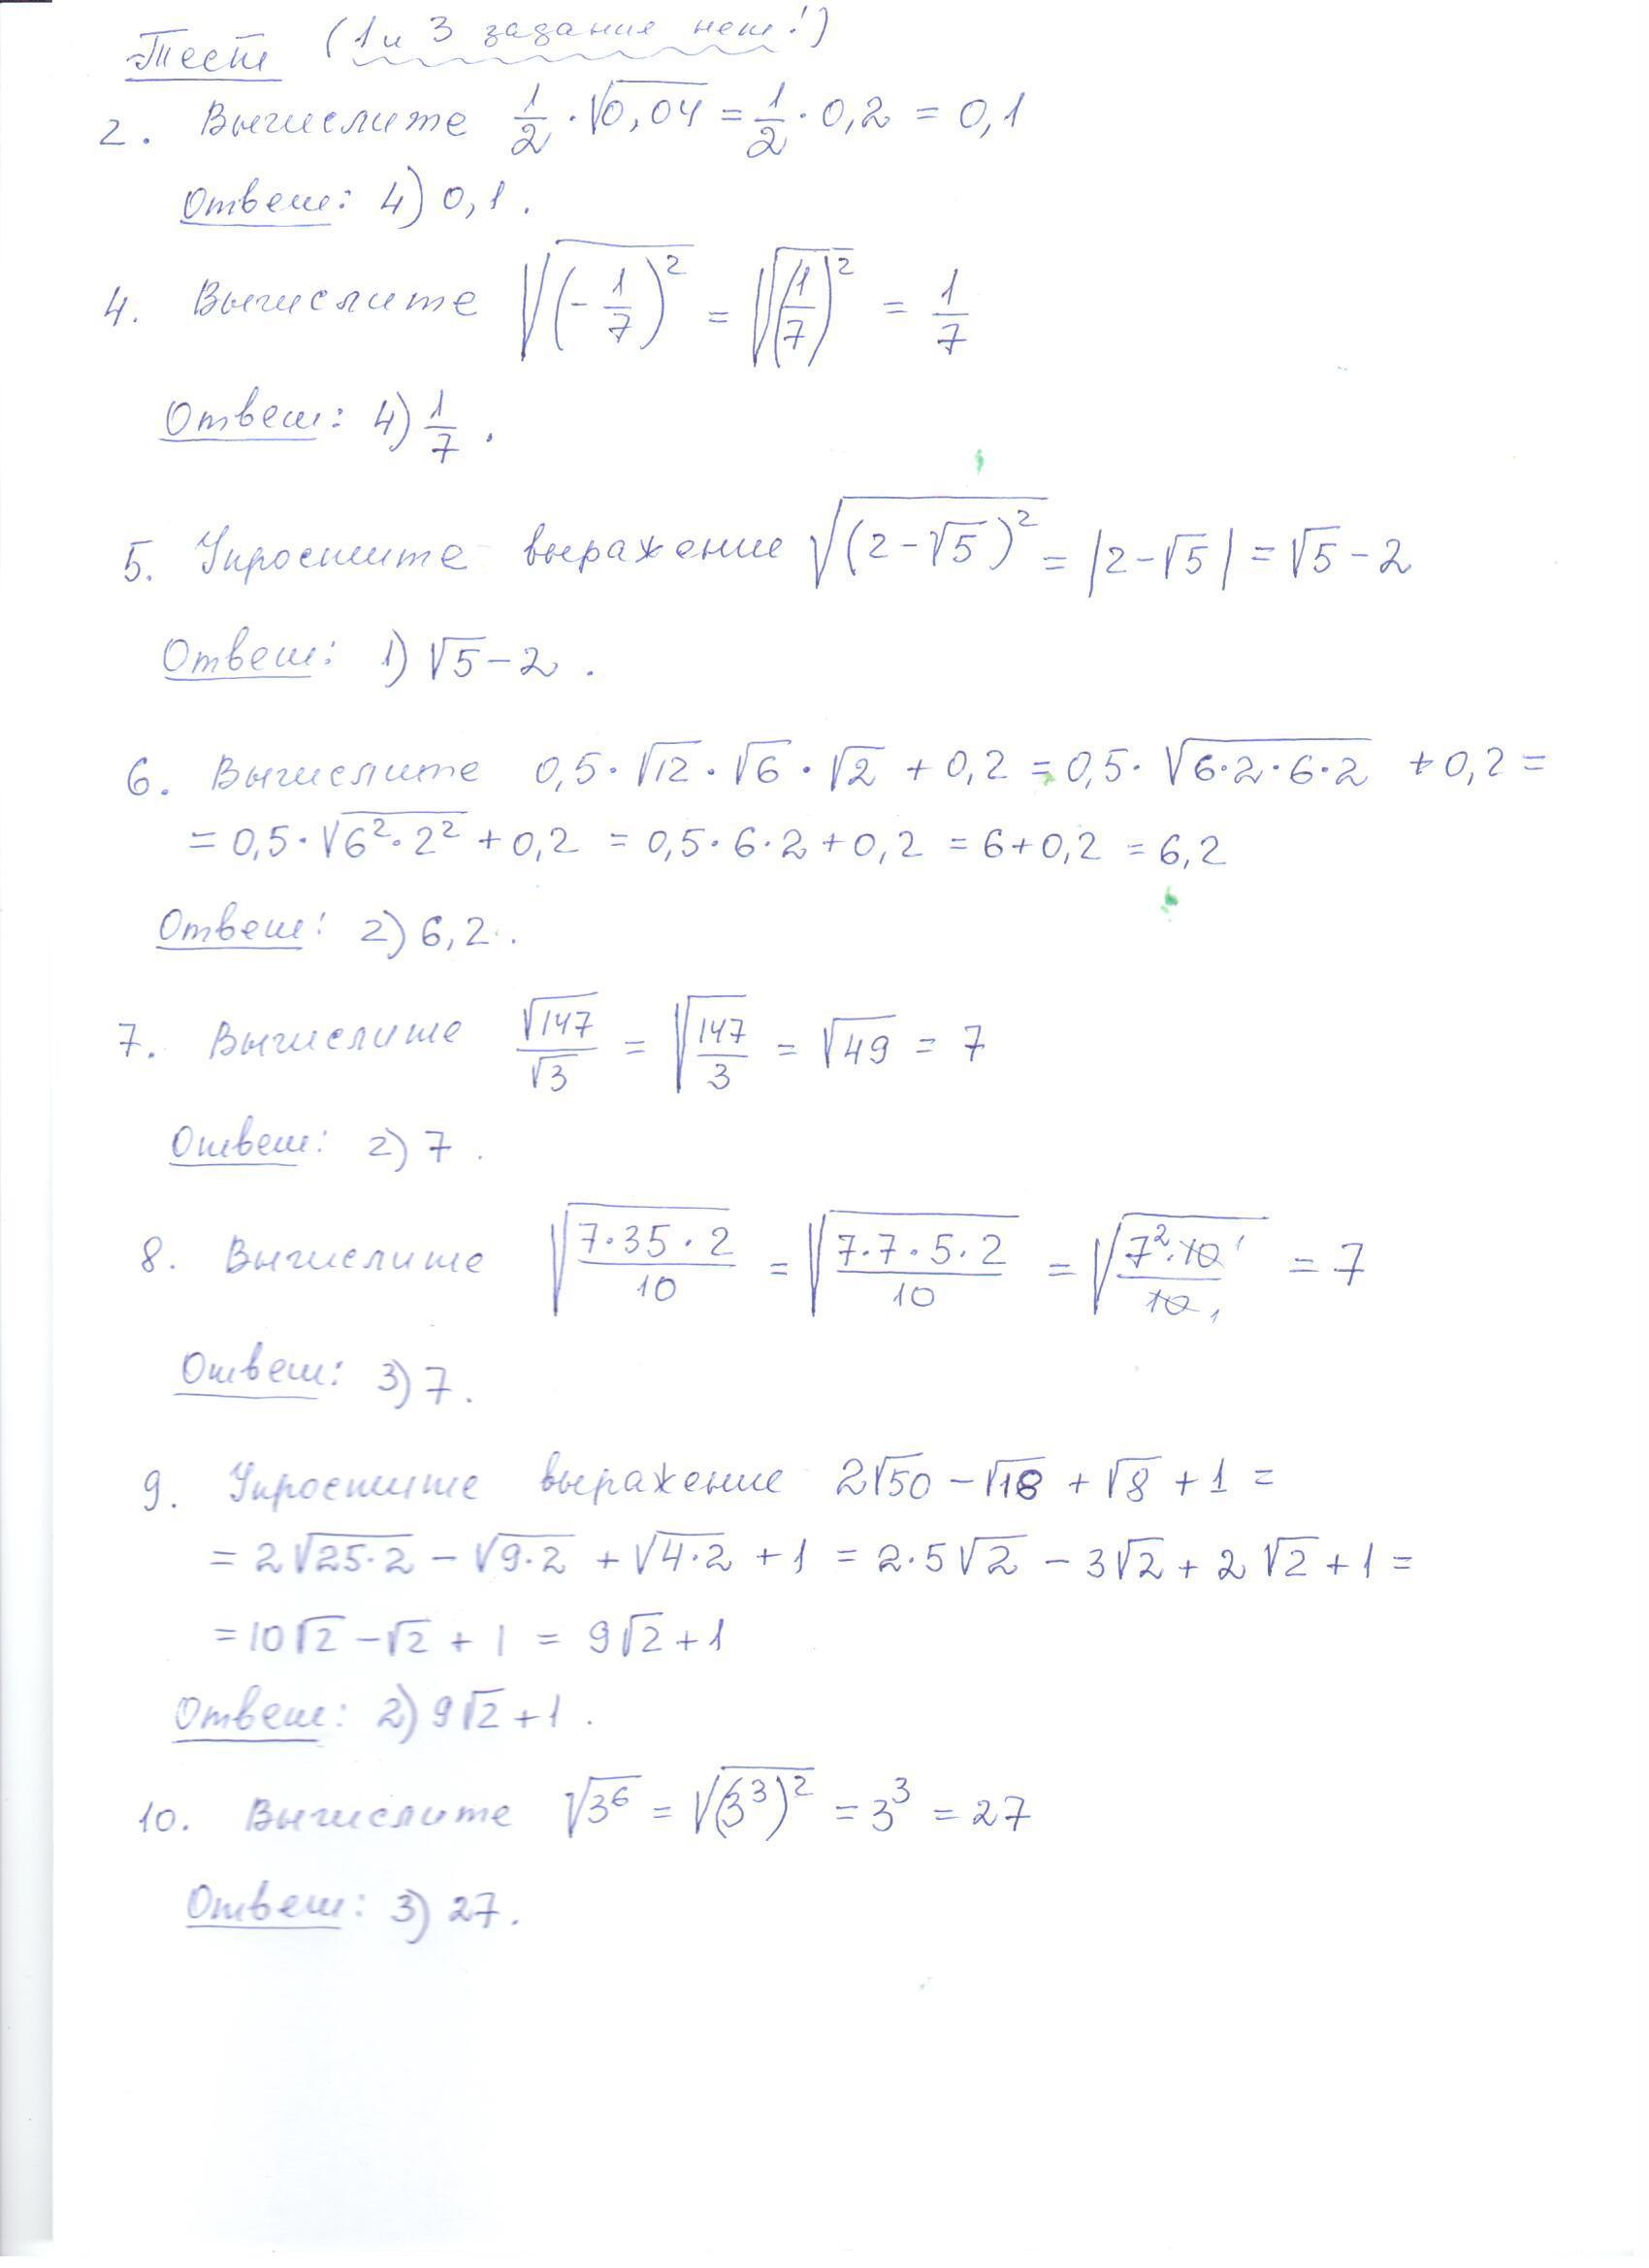 Тест (1 и 3 задания нет!)
2. Вычислите 1/2 · √0,04 = 1/2 · 0,2 = 0,1
Ответ: 4) 0,1.
4. Вычислите √(-1/7)² = √(1/7)² = 1/7
Ответ: 4) 1/7.
5. Упростите выражение √(2-√5)² = |2-√5| = √5 - 2
Ответ: 1) √5 - 2.
6. Вычислите 0,5·√12·√6·√2 + 0,2 = 0,5·√6·2·6·2 + 0,2 =
= 0,5·√6²·2² + 0,2 = 0,5·6·2 + 0,2 = 6 + 0,2 = 6,2
Ответ: 2) 6,2.
7. Вычислите √147/√3 = √147/3 = √49 = 7
Ответ: 2) 7.
8. Вычислите √7·35·2/10 = √7·7·5·2/10 = √7²·10 1/10 1 = 7
Ответ: 3) 7.
9. Упростите выражение 2√50 - √18 + √8 + 1 =
= 2√25·2 - √9·2 + √4·2 + 1 = 2·5√2 - 3√2 + 2√2 + 1 =
= 10√2 - √2 + 1 = 9√2 + 1
Ответ: 2) 9√2 + 1.
10. Вычислите √3⁶ = √(3³)² = 3³ = 27
Ответ: 3) 27.